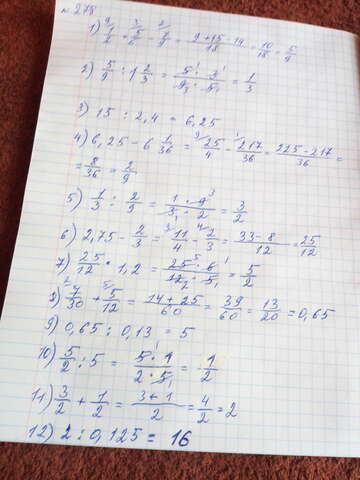 № 278
1) 1/2 + 5/6 - 7/9 = (9 + 15 - 14)/18 = 10/18 = 5/9
2) 5/9 : 1 2/3 = (5 · 3)/(9 · 5) = 1/3
3) 15 : 2,4 = 6,25
4) 6,25 - 6 1/36 = 25/4 - 217/36 = (225 - 217)/36 =
= 8/36 = 2/9
5) 1/3 : 2/9 = (1 · 9)/(3 · 2) = 3/2
6) 2,75 - 2/3 = 11/4 - 2/3 = (33 - 8)/12 = 25/12
7) 25/12 · 1,2 = (25 · 6)/(12 · 5) = 5/2
8) 7/30 + 5/12 = (14 + 25)/60 = 39/60 = 13/20 = 0,65
9) 0,65 : 0,13 = 5
10) 5/2 : 5 = (5 · 1)/(2 · 5) = 1/2
11) 3/2 + 1/2 = (3 + 1)/2 = 4/2 = 2
12) 2 : 0,125 = 16